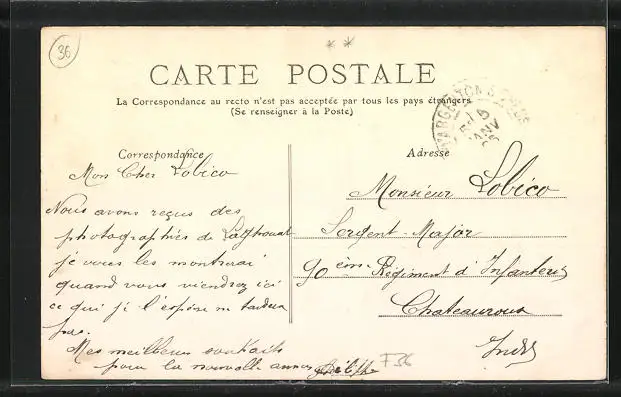 36
CARTE POSTALE
La Correspondance au recto n'est pas acceptée par tous les pays étrangers
(Se renseigner à la Poste)
ARGENTON S CREUSE
5 JANV
Correspondance
Mon Cher Lobico
Nous avons reçus des
photographies de Laghouat
je vous les montrerai
quand vous viendrez ici
ce qui je l'espère ne tardera
pas.
Mes meilleurs souhaits
pour la nouvelle année
F36
Adresse
Monsieur Lobico
Sergent-Major
90 ème Régiment d'Infanterie
Chateauroux
Indre